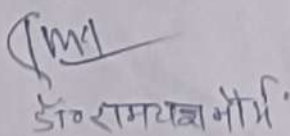 डॉ० रामयज्ञ मौर्य